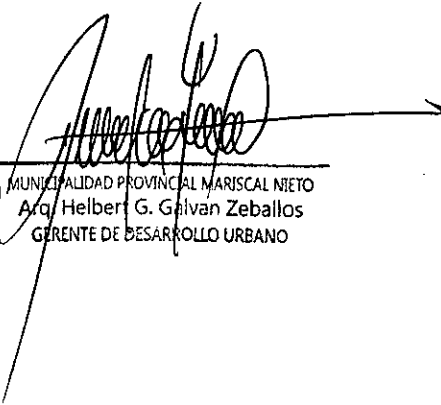 MUNICIPALIDAD PROVINCIAL MARISCAL NIETO
Arq. Helbert G. Galvan Zeballos
GERENTE DE DESARROLLO URBANO